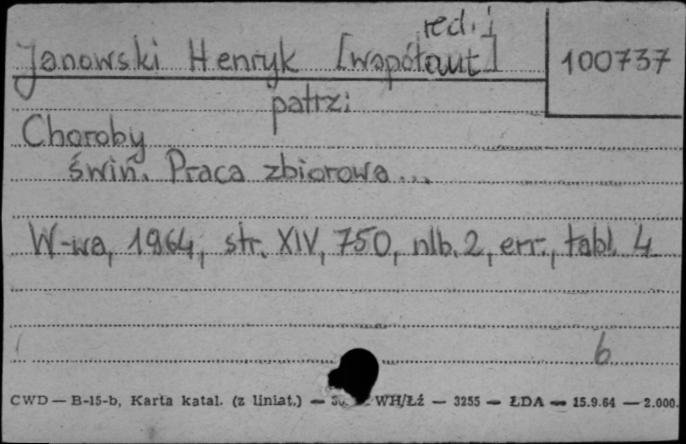 red. i
Janowski Henryk [współaut]
100737
patrz:
Choroby
świń. Praca zbiorowa...
W-wa, 1964, str. XIV, 750, nlb. 2, err., tabl. 4
6
CWD — B-15-b, Karta katal. (z liniat.) — WH/Łż — 3255 — ŁDA — 15.9.64 — 2.000.